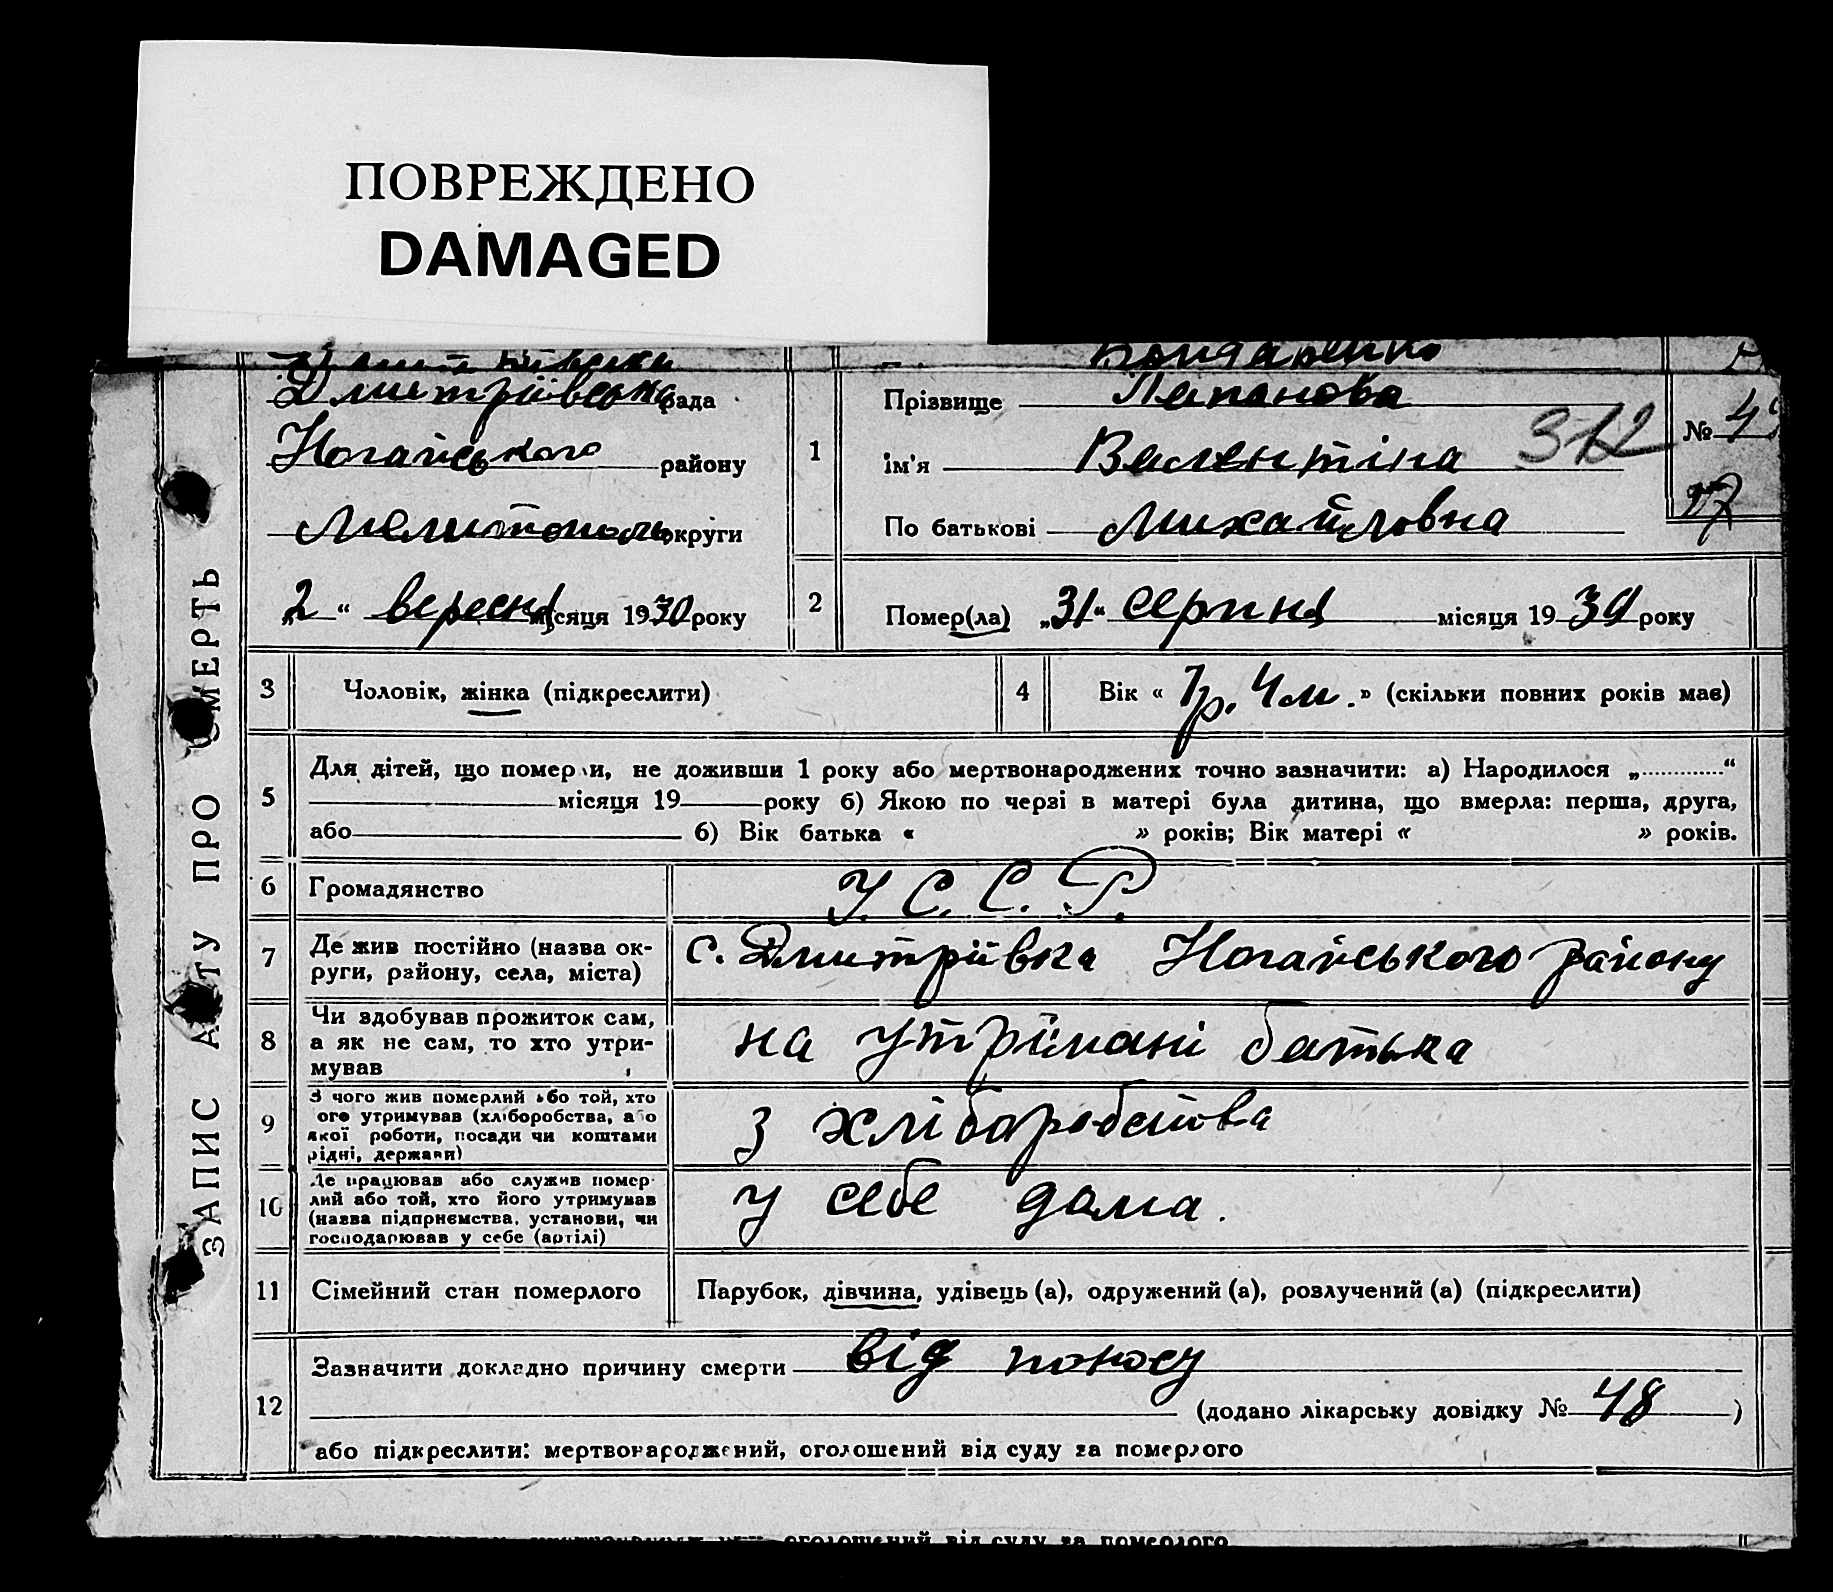 ПОВРЕЖДЕНО
DAMAGED
Бондаренко
Дмитріївська рада
Прізвище Лепанова
№
Ногайського району
1
ім'я Валентіна 312
27
Мелитополь округи
По батькові Михайловна
„2“ вересня місяця 1930 року
2
Помер(ла) „31“ серпня місяця 1930 року
ЗАПИС АКТУ ПРО СМЕРТЬ
3 Чоловік, жінка (підкреслити)
4 Вік « 1 р. 4 м. » (скільки повних років має)
5
Для дітей, що померли, не доживши 1 року або мертвонароджених точно зазначити: а) Народилося „............“
місяця 19 року б) Якою по черзі в матері була дитина, що вмерла: перша, друга,
або б) Вік батька « » років; Вік матері « » років.
6 Громадянство У. С. С. Р.
7 Де жив постійно (назва ок-
руги, району, села, міста)
с. Дмитріївка Ногайського району
8 Чи здобував прожиток сам,
а як не сам, то хто утри-
мував
на утрімані батька
9 З чого жив померлий або той, хто
ого утримував (хліборобства, або
якої роботи, посади чи коштами
рідні, держави)
з хліборобства
10 Де працював або служив помер-
лий або той, хто його утримував
(назва підприємства, установи, чи
господарював у себе (артілі)
у себе дома.
11 Сімейний стан померлого
Парубок, дівчина, удівець (а), одружений (а), розлучений (а) (підкреслити)
12
Зазначити докладно причину смерти від поносу
(додано лікарську довідку № 48 )
або підкреслити: мертвонароджений, оголошений від суду за померлого
оголошений від суду за померлого